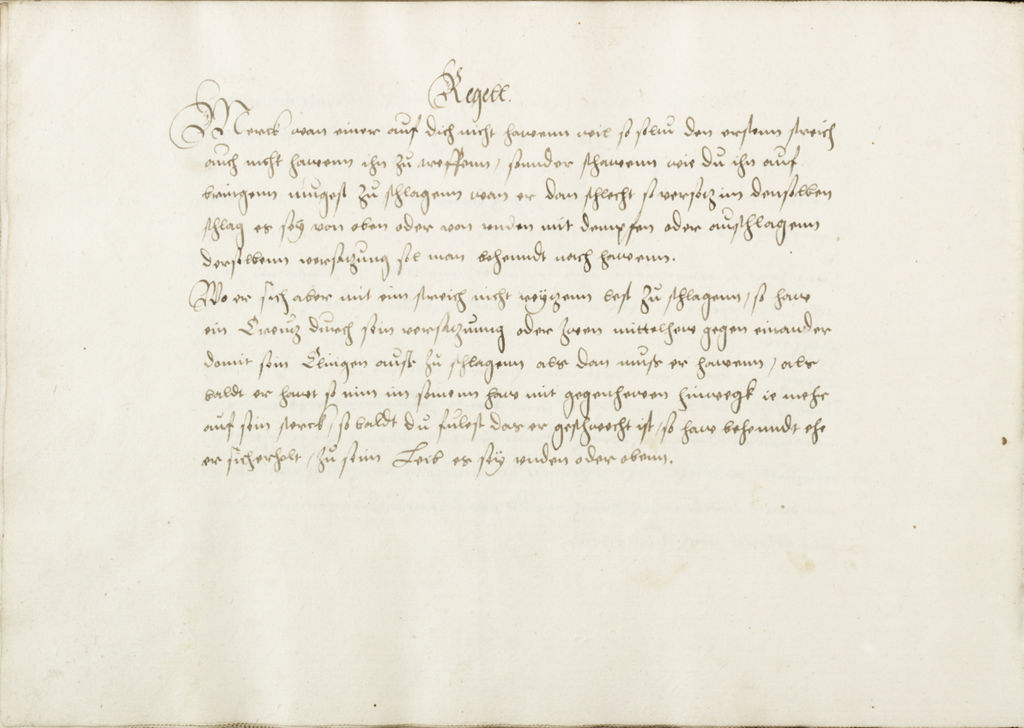 Regell.
Merck wan einer auf dich nicht hawenn wil so soltu den erstenn streich
auch nicht hawenn ihn zu treffenn, sonnder schawenn wie du ihn auf
bringenn mugest zu schlagenn wan er dan schlecht so versetz im denselben
schlag es sey von oben oder von unden mit dempfen oder ausschlagenn
derselbenn versatzung sol man behenndt nach hawenn.
Wo er sich aber mit eim streich nicht reytzenn lest zu schlagenn, so haw
ein Creutz durch sein versatzunng oder zwen mittelhew gegen einander
domit sein Clingen auss zu schlagenn als dan muss er hawenn, als
baldt er hawet so nim im seinenn haw mit gegenhewen hinwegk ie mehr
auf sein sterck, so baldt du fulest das er geschwecht ist, so haw behenndt ehe
er sich erholt, zu seim Leib es sey unden oder obenn.